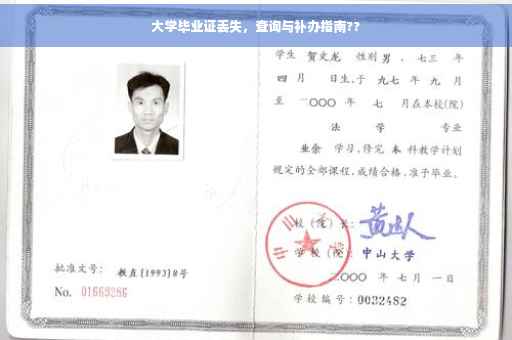 大学毕业证丢失，查询与补办指南??
学生 贺文龙 性别 男 、七三 年
四 月 日生,于 九七 年 九 月
至 二〇〇〇 年 七 月在本校(院)
法 学 专业
业余 学习,修完 本 科教学计划
规定的全部课程,成绩合格,准予毕业。
校(院)长:
学校(院): 中山大学
二〇〇〇 年 七 月 一 日
批准文号: 教直[1993]8号
No. 01663286
学校编号: 0032482